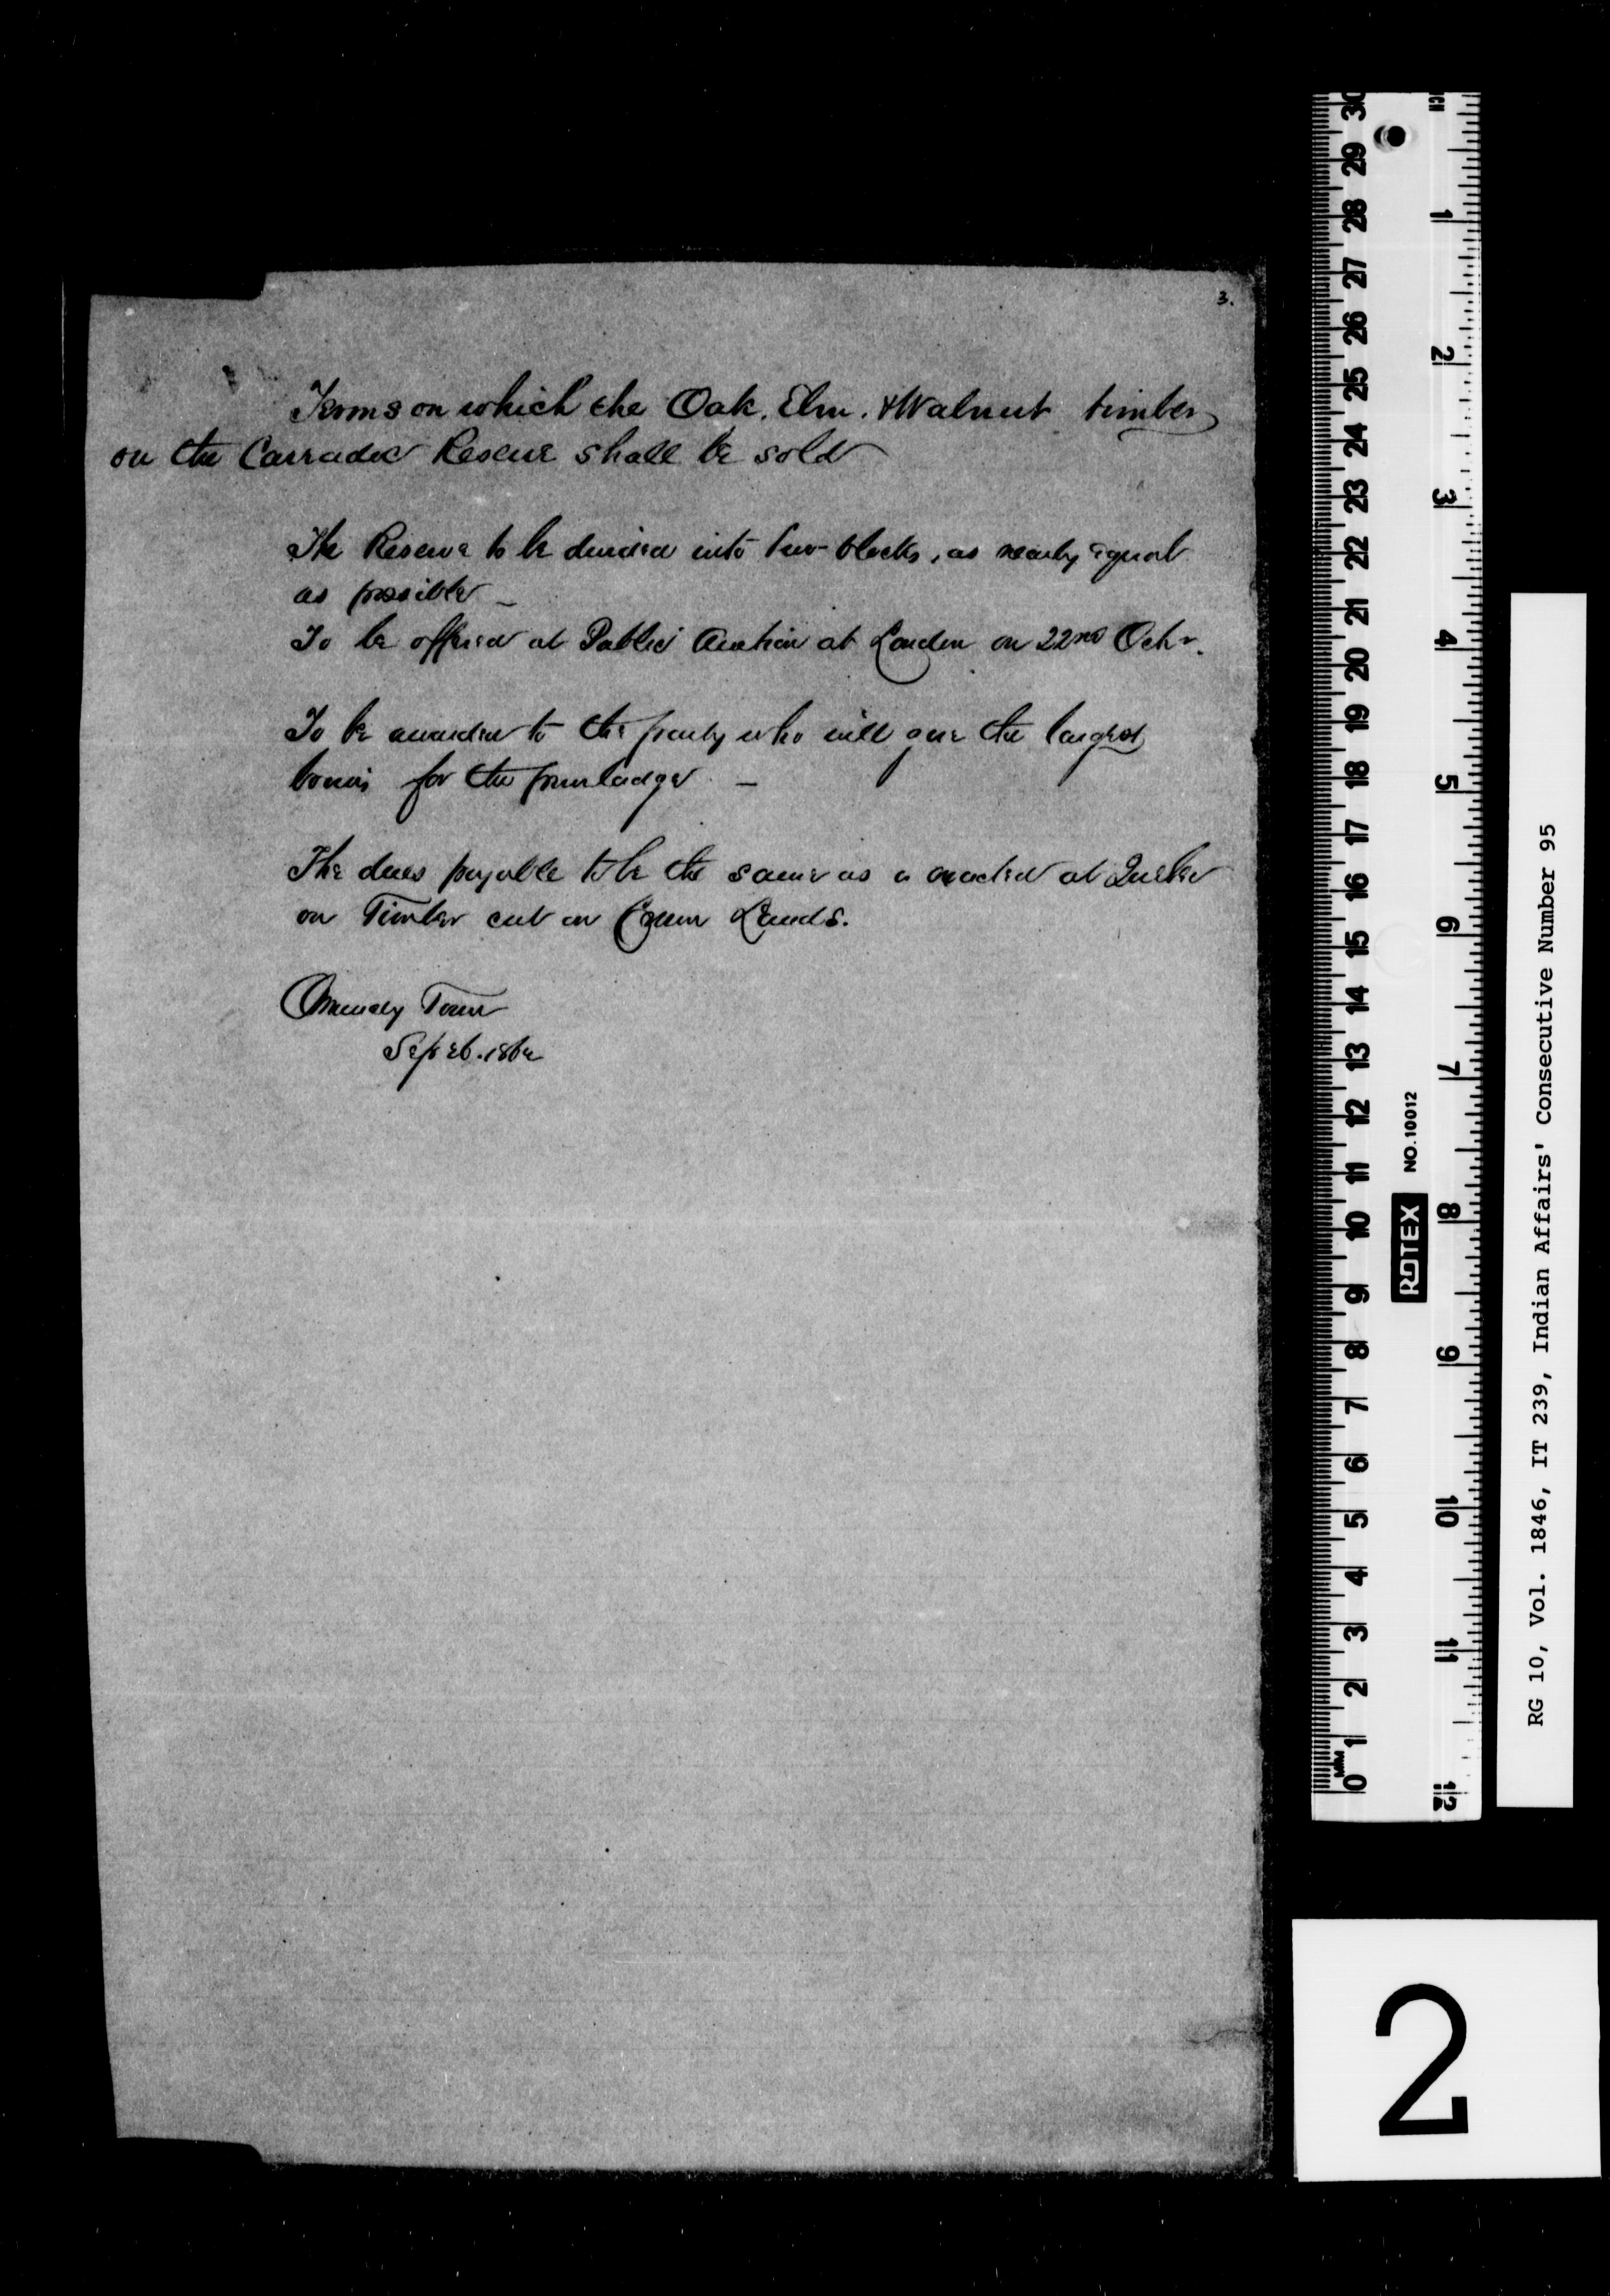 3.
Terms on which the Oak, Elm, & Walnut timber
on the Carradoc Reserve shall be sold
The Reserve to be divided into two blocks, as nearly equal
as possible _
To be offered at Public Auction at London on 22nd Octr.
To be awarded to the party who will give the largest
bonus for the priviladge. —
The dues payable to be the same as is exacted at Quebec
on Timber cut on Crown Lands.
Muncey Town
Sept 26. 186
RG 10, Vol. 1846, IT 239, Indian Affairs' Consecutive Number 95
ROTEX NO.10012
2